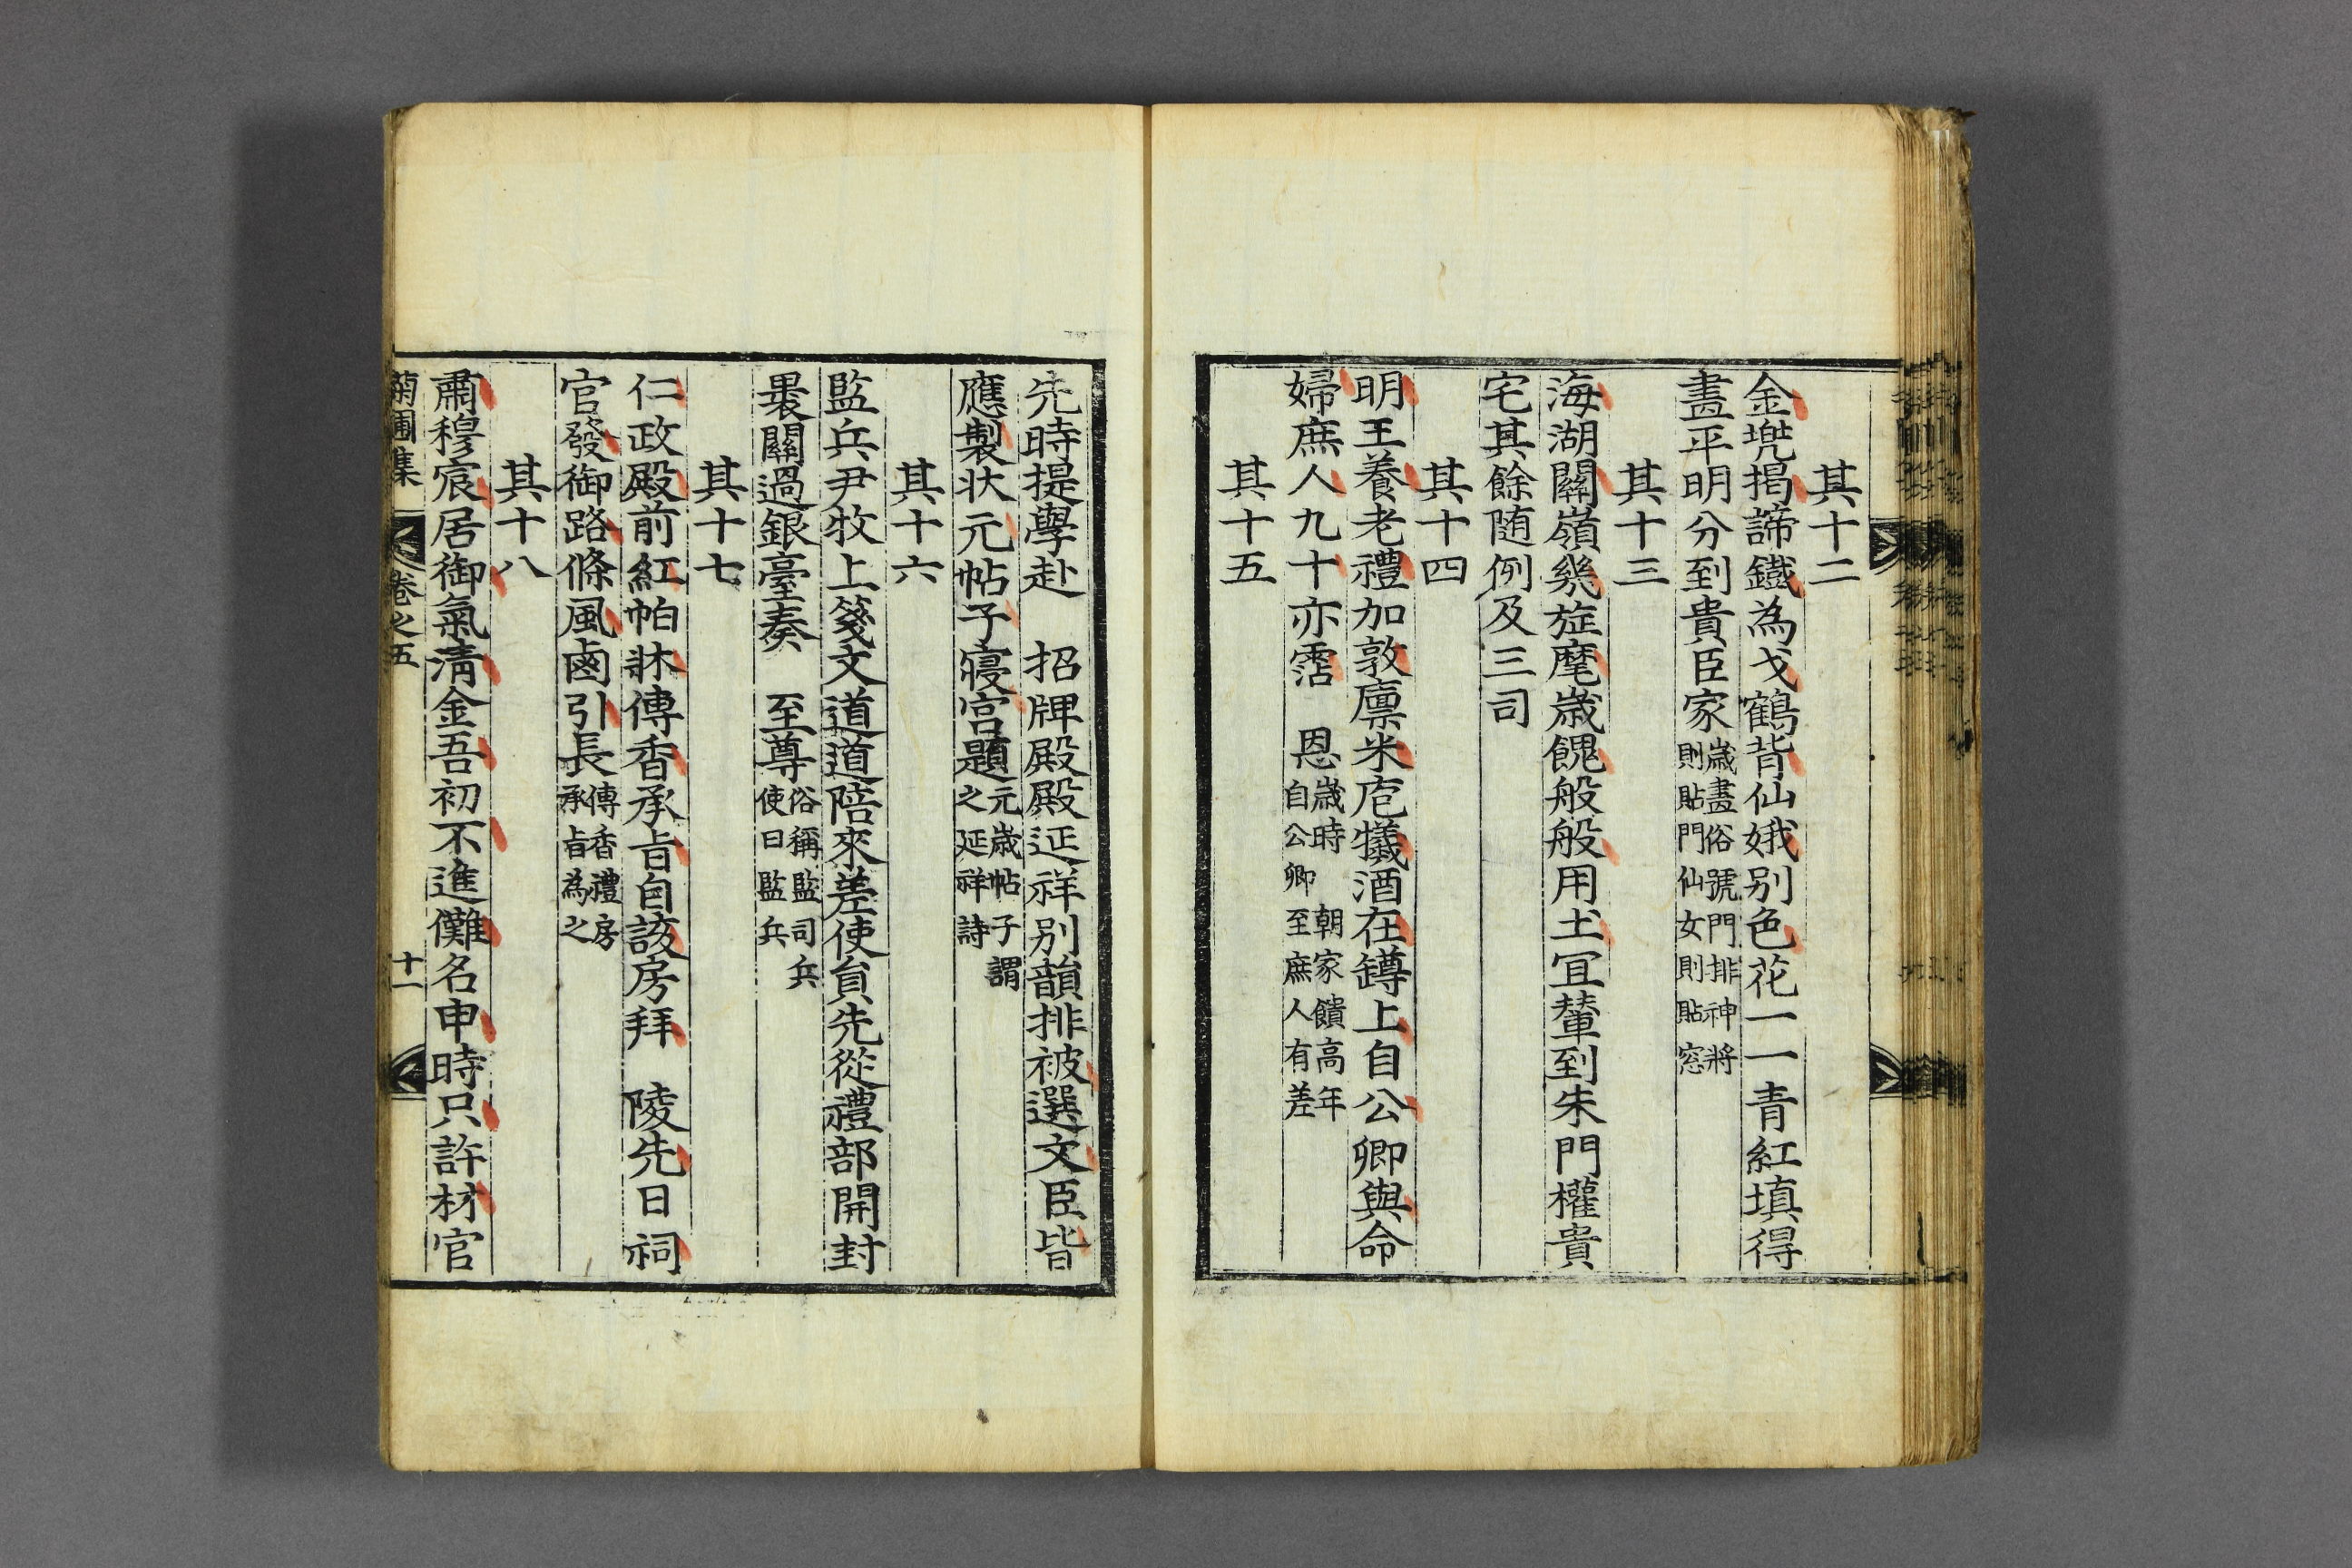 其十二
金兠揭諦鐵為戈鶴背仙娥别色花一一青紅填得
盡平明分到貴臣家歲盡俗號門排神將
則貼門仙女則貼窓
其十三
海湖關嶺幾旌麾歲餽般般用土冝輦到朱門權貴
宅其餘随例及三司
其十四
明王養老禮加敦廪米庖犧酒在罇上自公卿與命
婦庶人九十亦霑 恩歲時 朝家饋高年
自公卿至庶人有差
其十五
先時提學赴 招牌殿殿延祥别韻排被選文臣皆
應製狀元帖子寢宫題元歲帖子謂
之延祥詩
其十六
監兵尹牧上箋文道道陪來差使負先從禮部開封
褁關過銀臺奏 至尊俗稱監司兵
使曰監兵
其十七
仁政殿前紅帕牀傳香承旨自該房拜 陵先日祠
官發御路條風鹵引長傳香禮房
承旨為之
其十八
肅穆宸居御氣淸金吾初不進儺名申時只許材官
菊圃集 卷之五 十一